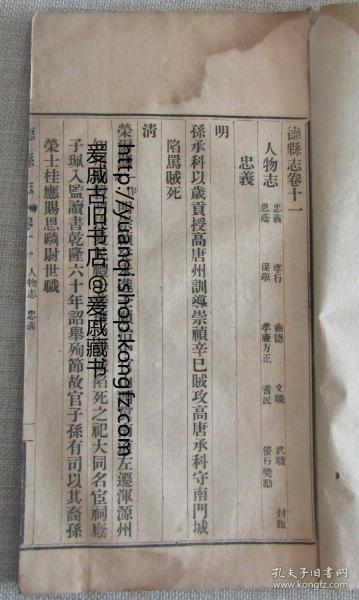 德縣志卷十一
人物志
忠義 孝行 齒德 文職 武職 封廕
恩蔭 保舉 孝廉方正 耆民 優行獎勵
忠義
明
孫承科以歲貢授高唐州訓導崇禎辛巳賊攻高唐承科守南門城
陷罵賊死
清
榮 左遷渾源州
陷死之祀大同名宦祠廕
子珮入監讀書乾隆六十年詔舉殉節故官子孫有司以其裔孫
榮士桂應賜恩騎尉世職
德縣志 卷十一 人物志 忠義 一
爱戚古旧书店@爱戚藏书
http://yuanqishop.kongfz.com
孔夫子旧书网